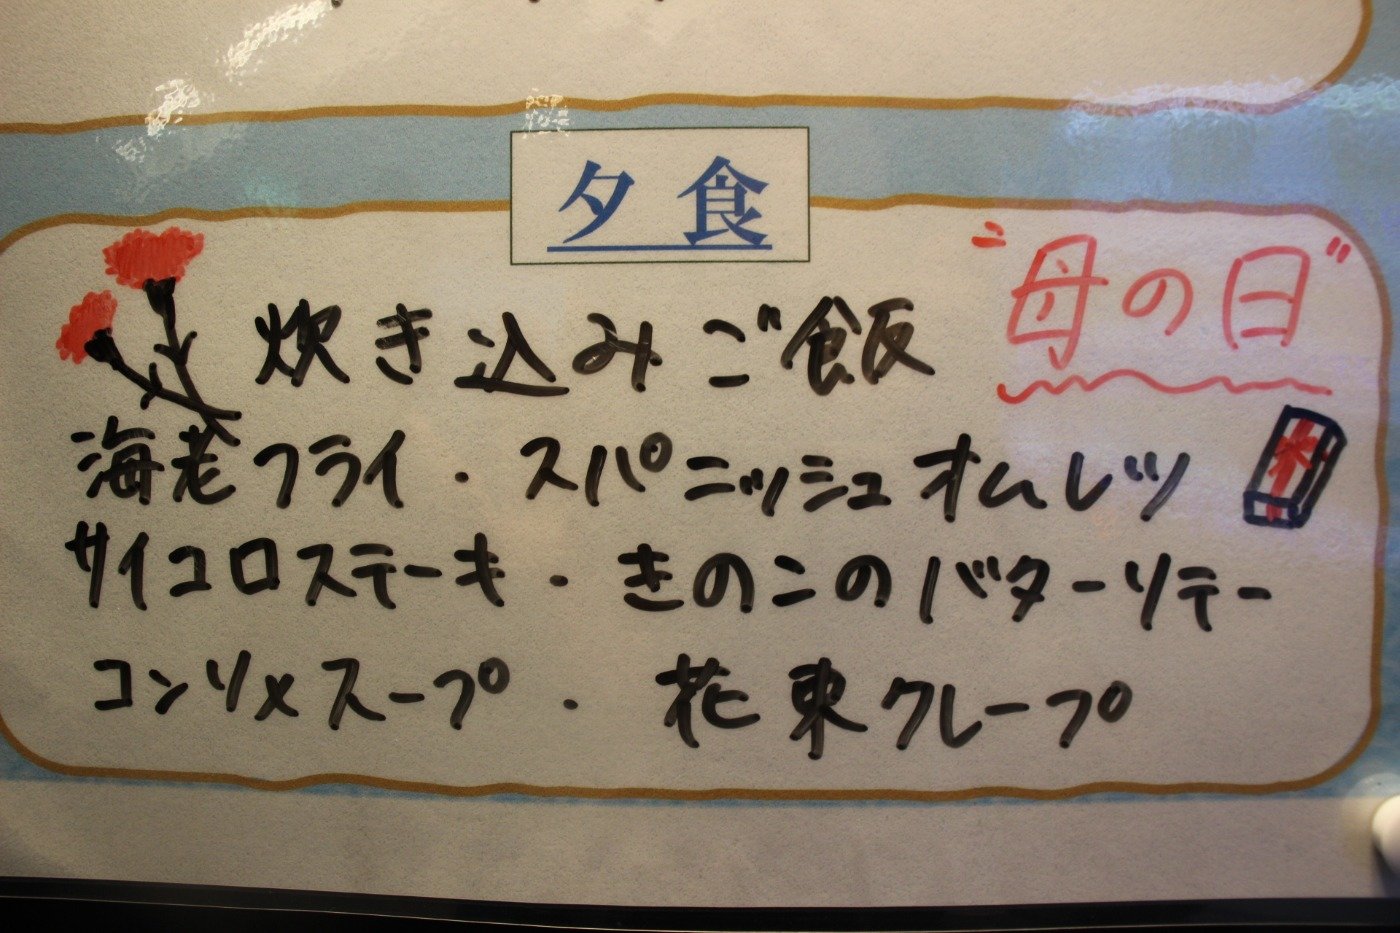 夕食
"母の日"
炊き込みご飯
海老フライ・スパニッシュオムレツ
サイコロステーキ・きのこのバターソテー
コンソメスープ・花束クレープ